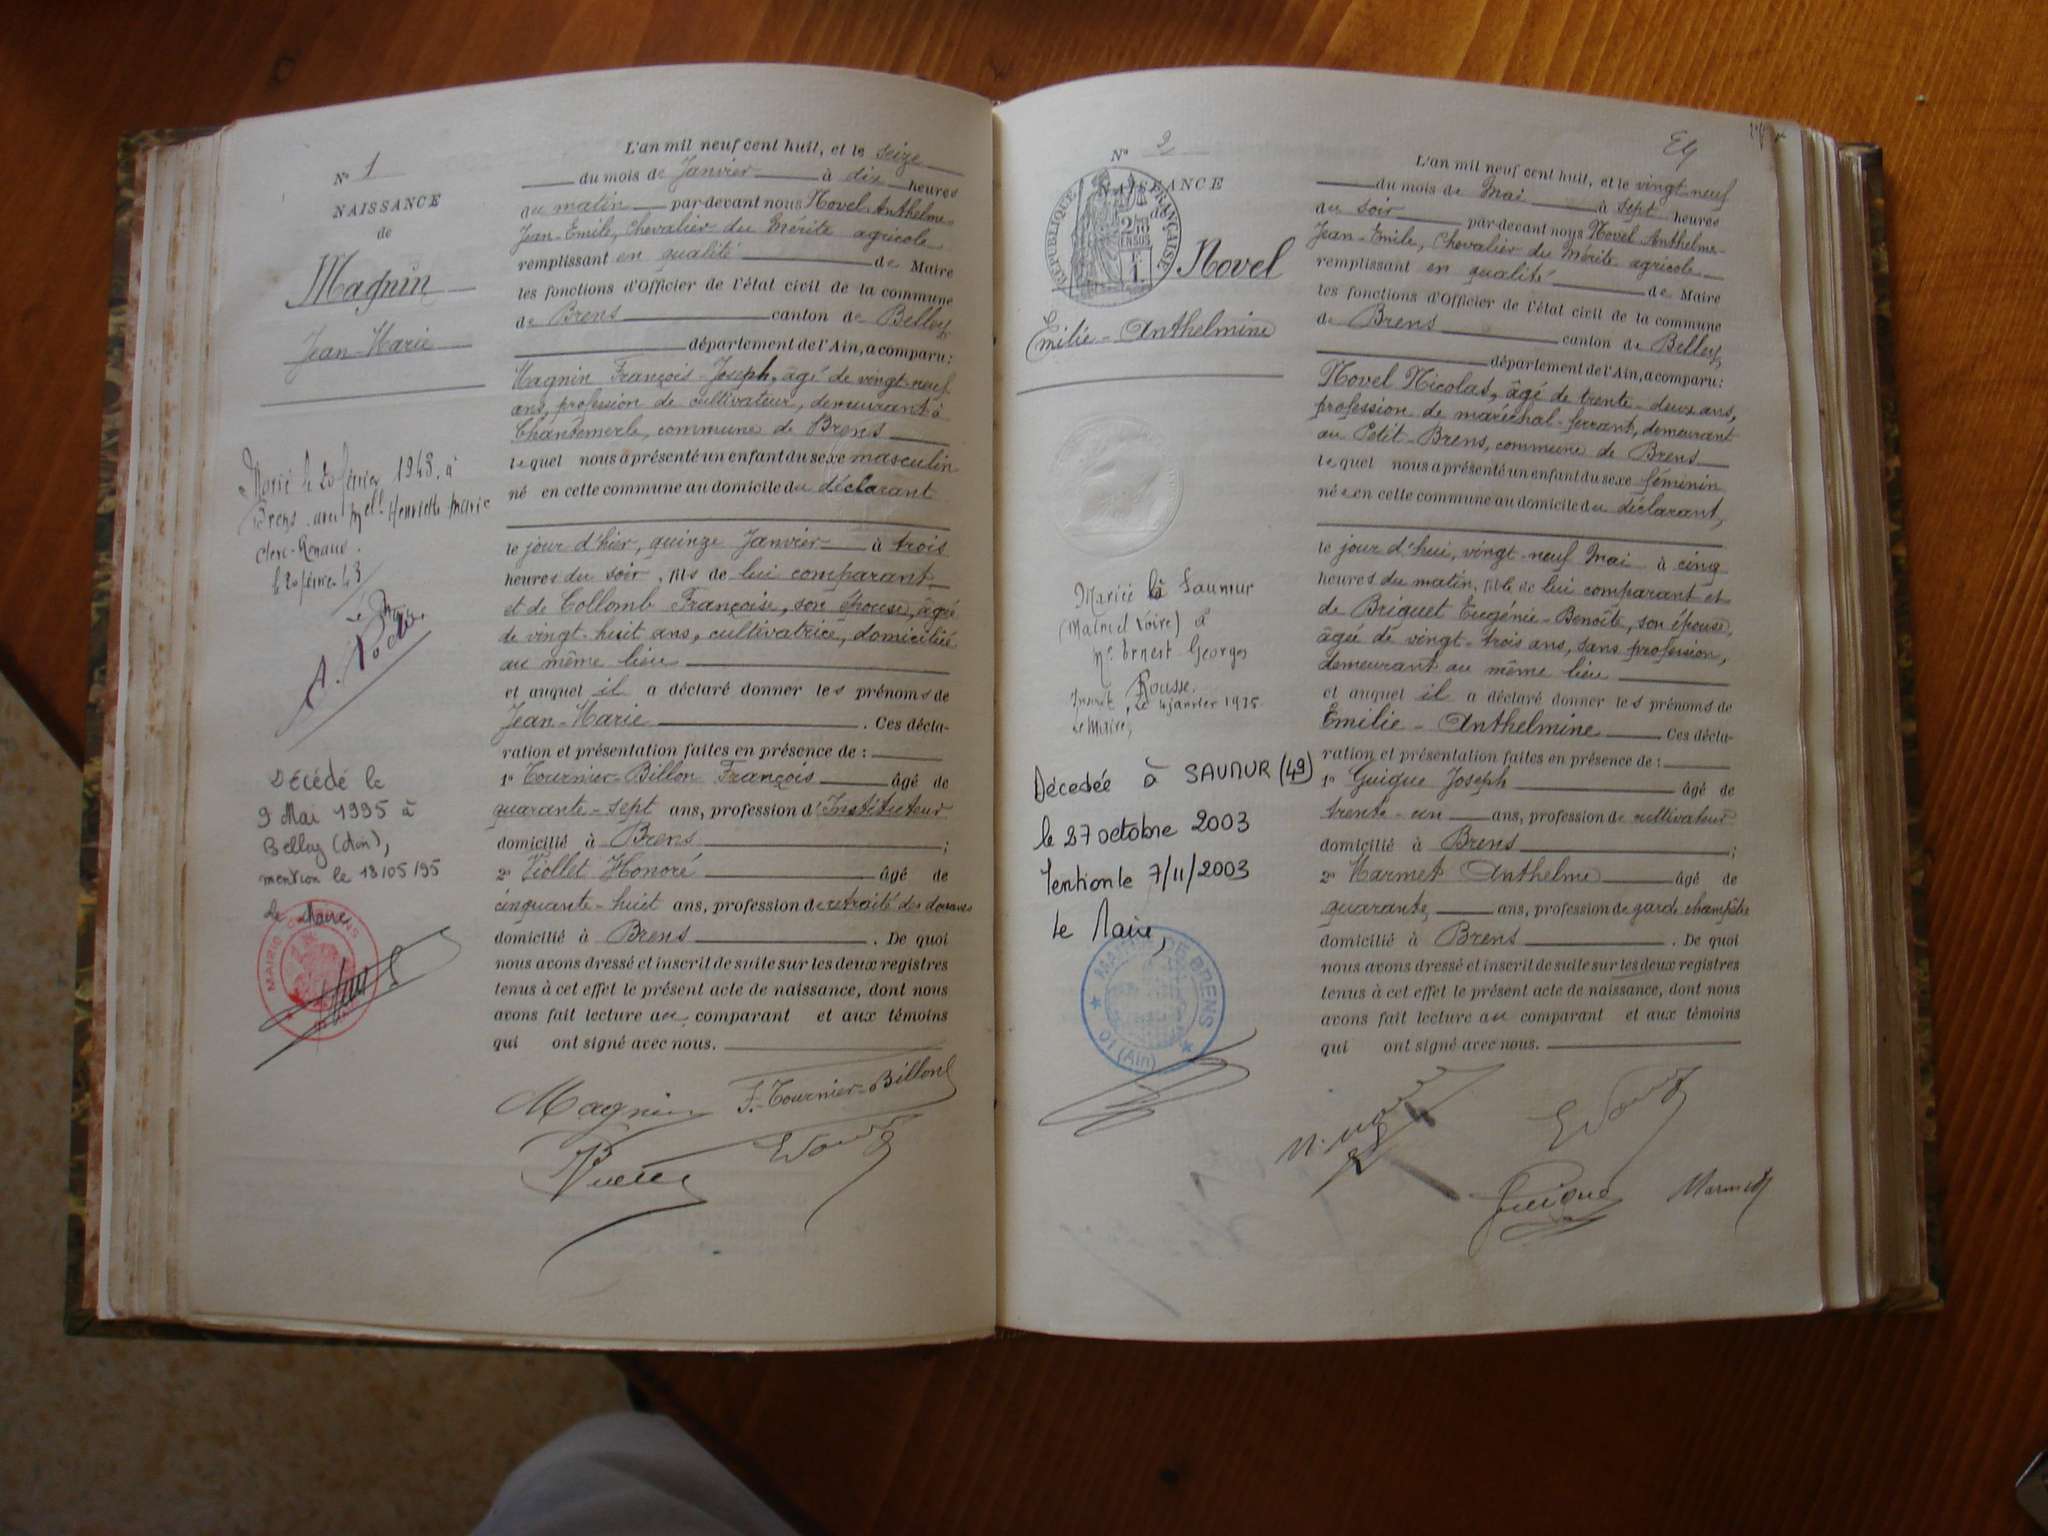 N° 1
NAISSANCE
de
Magnin
Jean-Marie
Marié le 20 février 1943. à
Brens avec Mell Henriette Marie
Clerc-Renaud.
le 20 février 43
Le
A.
Décédé le
9 Mai 1995 à
Belley (Ain),
mention le 18/05/95
Le Maire,
MAIRIE BRENS
L'an mil neuf cent huit, et le seize
du mois de Janvier à dix heures
du matin par-devant nous Novel Anthelme-
Jean-Emile, Chevalier du Mérite agricole
remplissant en qualité de Maire
les fonctions d'Officier de l'état civil de la commune
de Brens canton de Belley,
département de l'Ain, a comparu:
Magnin François-Joseph, âgé de vingt-neuf
ans, profession de cultivateur, demeurant à
Chantemerle, commune de Brens
lequel nous a présenté un enfant du sexe masculin
né en cette commune au domicile du déclarant
le jour d'hier, quinze Janvier à trois
heures du soir, fils de lui comparant
et de Collomb Françoise, son épouse, âgée
de vingt-huit ans, cultivatrice, domiciliée
au même lieu
et auquel il a déclaré donner les prénoms de
Jean-Marie . Ces décla-
ration et présentation faites en présence de :
1° Tournier-Billon François âgé de
quarante-sept ans, profession d'Instituteur
domicilié à Brens ;
2° Viollet Honoré âgé de
cinquante-huit ans, profession de retraité des douanes
domicilié à Brens . De quoi
nous avons dressé et inscrit de suite sur les deux registres
tenus à cet effet le présent acte de naissance, dont nous
avons fait lecture au comparant et aux témoins
qui ont signé avec nous.
Magnin F. Tournier-Billon
N° 2
NAISSANCE
de
RÉPUBLIQUE FRANÇAISE
Novel
Emilie-Anthelmine
Mariée à Saumur
(Maine et Loire) à
Mr Ernest Georges
Rousse.
Inscrit le 4 janvier 1935
Le Maire,
Décédée à SAUMUR (49)
le 27 octobre 2003
Mention le 7/11/2003
Le Maire,
MAIRIE DE BRENS
01 (Ain)
L'an mil neuf cent huit, et le vingt-neuf
du mois de Mai à sept heures
du soir par-devant nous Novel Anthelme-
Jean-Emile, Chevalier du Mérite agricole
remplissant en qualité de Maire
les fonctions d'Officier de l'état civil de la commune
de Brens canton de Belley,
département de l'Ain, a comparu:
Novel Nicolas, âgé de trente-deux ans,
profession de maréchal-ferrant, demeurant
au Petit-Brens, commune de Brens
lequel nous a présenté un enfant du sexe féminin
née en cette commune au domicile du déclarant,
le jour d'hui, vingt-neuf Mai à cinq
heures du matin, fille de lui comparant et
de Briquet Eugénie-Benoîte, son épouse,
âgée de vingt-trois ans, sans profession,
demeurant au même lieu
et auquel il a déclaré donner les prénoms de
Emilie-Anthelmine Ces décla-
ration et présentation faites en présence de :
1° Guigue Joseph âgé de
trente-un ans, profession de cultivateur
domicilié à Brens ;
2° Marmet Anthelme âgé de
quarante, ans, profession de garde champêtre
domicilié à Brens . De quoi
nous avons dressé et inscrit de suite sur les deux registres
tenus à cet effet le présent acte de naissance, dont nous
avons fait lecture au comparant et aux témoins
qui ont signé avec nous.
Guigue Marmet